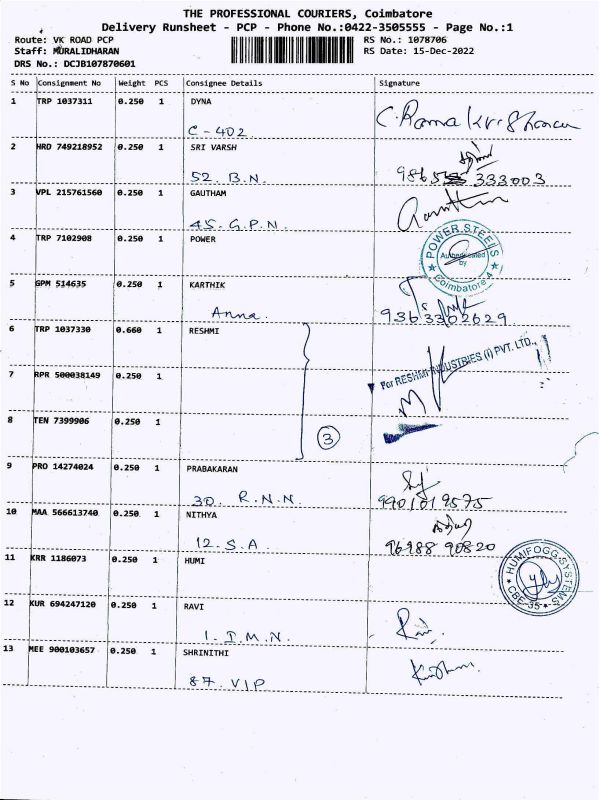 THE PROFESSIONAL COURIERS, Coimbatore
Delivery Runsheet - PCP - Phone No.:0422-3505555 - Page No.:1
Route: VK ROAD PCP RS No.: 1078706
Staff: MURALIDHARAN RS Date: 15-Dec-2022
DRS No.: DCJB107870601
S No Consignment No Weight PCS Consignee Details Signature
1 TRP 1037311 0.250 1 DYNA
C-402 C. Ramakrishnan
2 HRD 749218952 0.250 1 SRI VARSH
52. B.N. 333003
3 VPL 215761560 0.250 1 GAUTHAM
45. G.P.N.
4 TRP 7102908 0.250 1 POWER
POWER STEELS
Authenticated
by
Coimbatore-4
5 GPM 514635 0.250 1 KARTHIK
Anna. 9363302629
6 TRP 1037330 0.660 1 RESHMI
For RESHMI INDUSTRIES (I) PVT. LTD.,
7 RPR 500038149 0.250 1
8 TEN 7399906 0.250 1
3
9 PRO 14274024 0.250 1 PRABAKARAN
30. R.N.N. 9901019575
10 MAA 566613740 0.250 1 NITHYA
12. S.A. 96988 90820
11 KRR 1186073 0.250 1 HUMI
HUMIFOGG SYSTEMS
CBE-35
12 KUR 694247120 0.250 1 RAVI
1. I.M.N. Ravi
13 MEE 900103657 0.250 1 SHRINITHI
87. VIP